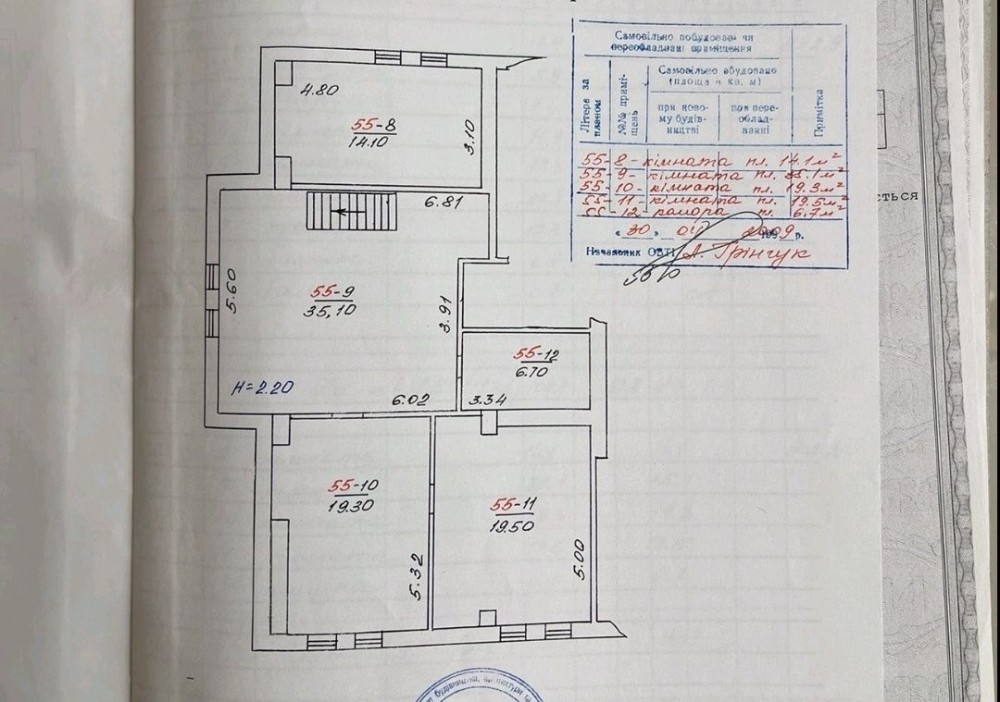 Самовільно побудовані чи
переобладнані приміщення
Літера за планом
№№ приміщень
Самовільно збудовано
(площа в кв. м)
при новому будівництві
при переобладнанні
Примітка
55-8 - кімната пл. 14.1 м²
55-9 - кімната пл. 35.1 м²
55-10 - кімната пл. 19.3 м²
55-11 - кімната пл. 19.5 м²
55-12 - комора пл. 6.7 м²
« 30 » 04 2009 р.
Начальник ОБТІ А. Грінчук
4.80
55-8
14.10
3.10
6.81
55-9
35,10
5.60
3.91
H=2.20
6.02
55-12
6.70
3.34
55-10
19.30
5.32
55-11
19.50
5.00
ється